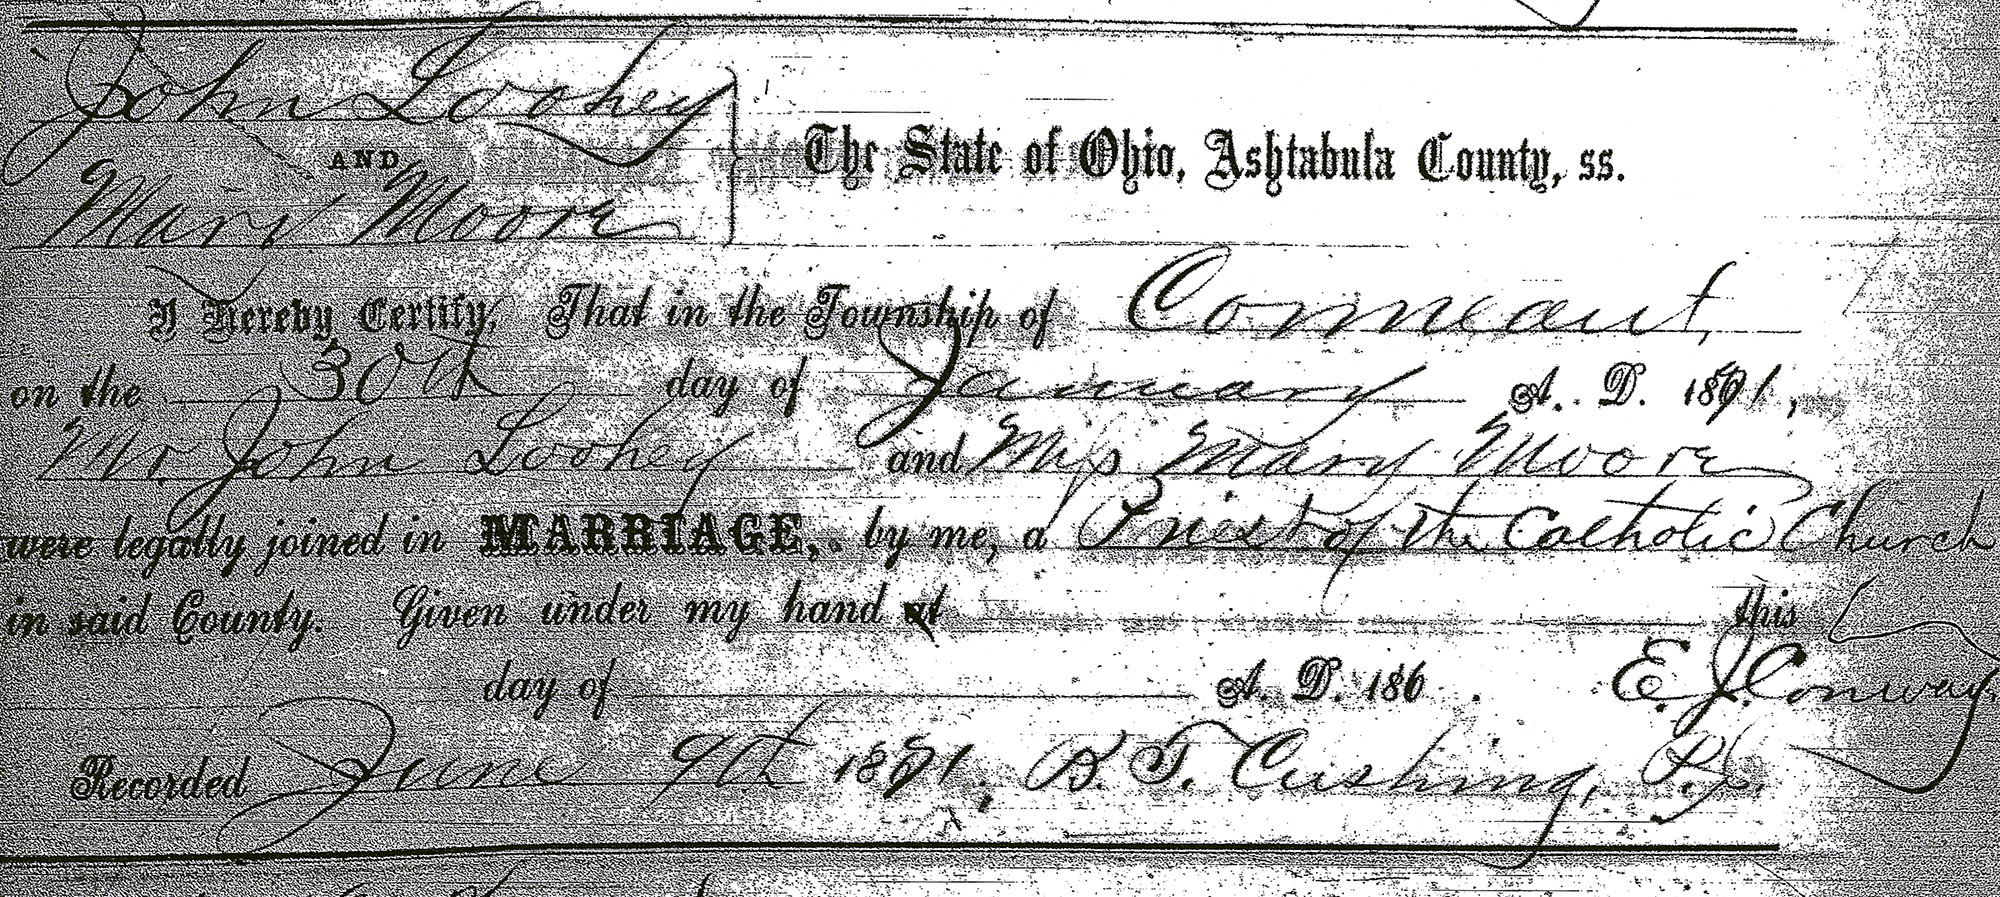 John Loohey
AND
Mary Moore
The State of Ohio, Ashtabula County, ss.
I Hereby Certify, That in the Township of Conneaut,
on the 30th day of January A. D. 1871,
Mr. John Loohey and Miss Mary Moore
were legally joined in MARRIAGE, by me, a Priest of the Catholic Church
in said County. Given under my hand at this
day of A. D. 186 . E. J. Conway
Recorded June 9th 1871. T. Cushing, P.J.